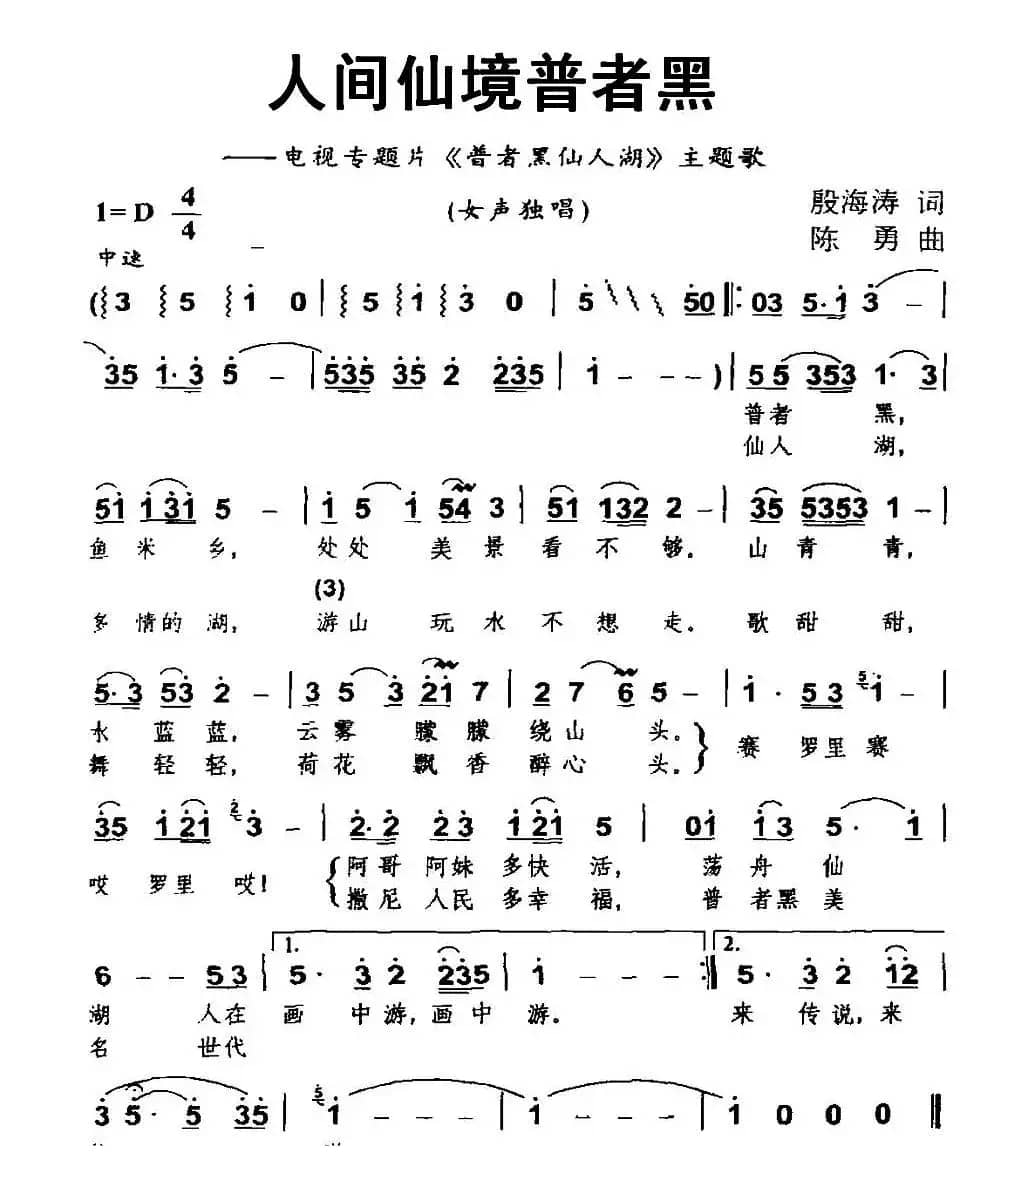 人间仙境普者黑
——电视专题片《普者黑仙人湖》主题歌
1=D 4/4 (女声独唱) 殷海涛 词
陈勇 曲
中速
(3 5 1 0 | 5 1 3 0 | 5 50 ‖: 03 5·1 3 – |
35 1·3 5 – | 535 35 2 235 | 1 – – – ) | 55 353 1· 3 |
普者 黑,
仙人 湖,
51 131 5 – | 1 5 1 54 3 | 51 132 2 – | 35 5353 1 – |
鱼米乡, 处处美景看不够。山青青,
(3)
多情的湖, 游山玩水不想走。歌甜甜,
5·3 53 2 – | 3 5 3 21 7 | 2 7 6 5 – | 1· 53 5 1 – |
水蓝蓝, 云雾朦朦绕山头。
赛 罗里赛
舞轻轻, 荷花飘香醉心头。
35 121 2 3 – | 2·2 23 121 5 | 01 13 5· 1 |
阿哥阿妹多快活, 荡舟仙
哎 罗里哎!
撒尼人民多幸福, 普者黑美
1. 2.
6 – – 53 | 5· 3 2 235 | 1 – – – :‖ 5· 3 2 12 |
湖 人在画中游,画中游。 来传说,来
名 世代
3 5· 5 35 | 5 1 – – – | 1 – – – | 1 0 0 0 ‖